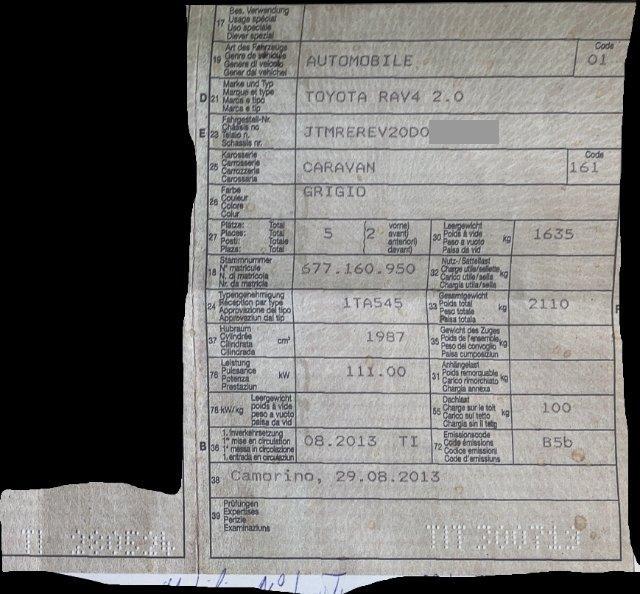 17 Bes. Verwendung
Usage spécial
Uso speciale
Diever spezial
19 Art des Fahrzeugs
Genre de véhicule
Genere di veicolo
Gener dal vehichel
AUTOMOBILE
Code
01
D 21 Marke und Typ
Marque et type
Marca e tipo
Marca e tip
TOYOTA RAV4 2.0
E 23 Fahrgestell-Nr.
Châssis no
Telaio n.
Schassis nr.
JTMREREV20D0
25 Karosserie
Carrosserie
Carrozzeria
Carossaria
CARAVAN
Code
161
26 Farbe
Couleur
Colore
Colur
GRIGIO
27 Plätze: Total
Places: Total
Posti: Totale
Plazs: Total
5 (2 vorne)
avant)
anteriori)
davant)
30 Leergewicht
Poids à vide
Peso a vuoto
Paisa da vid
kg 1635
18 Stammnummer
N° matricule
N. di matricola
Nr. da matricla
677.160.950
32 Nutz-/Sattellast
Charge utile/sellette
Carico utile/sella
Chargia utila/sella
kg
24 Typengenehmigung
Réception par type
Approvazione del tipo
Approvaziun dal tip
1TA545
33 Gesamtgewicht
Poids total
Peso totale
Paisa totala
kg 2110
37 Hubraum
Cylindrée
Cilindrata
Cilindrada
cm³ 1987
35 Gewicht des Zuges
Poids de l'ensemble
Peso del convoglio
Paisa cumposiziun
kg
76 Leistung
Puissance
Potenza
Prestaziun
kW 111.00
31 Anhängelast
Poids remorquable
Carico rimorchiato
Chargia annexa
kg
78 kW/kg Leergewicht
poids à vide
peso a vuoto
paisa da vid
55 Dachlast
Charge sur le toit
Carico sul tetto
Chargia sin il tetg
kg 100
B 36 1. Inverkehrsetzung
1re mise en circulation
1a messa in circolazione
1. entrada en circulaziun
08.2013 TI
72 Emissionscode
Code émissions
Codice emissioni
Code d'emissiuns
B5b
38 Camorino, 29.08.2013
39 Prüfungen
Expertises
Perizie
Examinaziuns
TIT 300713